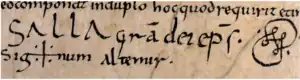 eocomponat induplo hoc quod requirit ecr
SALLA grā dei eps̄.
Sig ╬ num altemir.